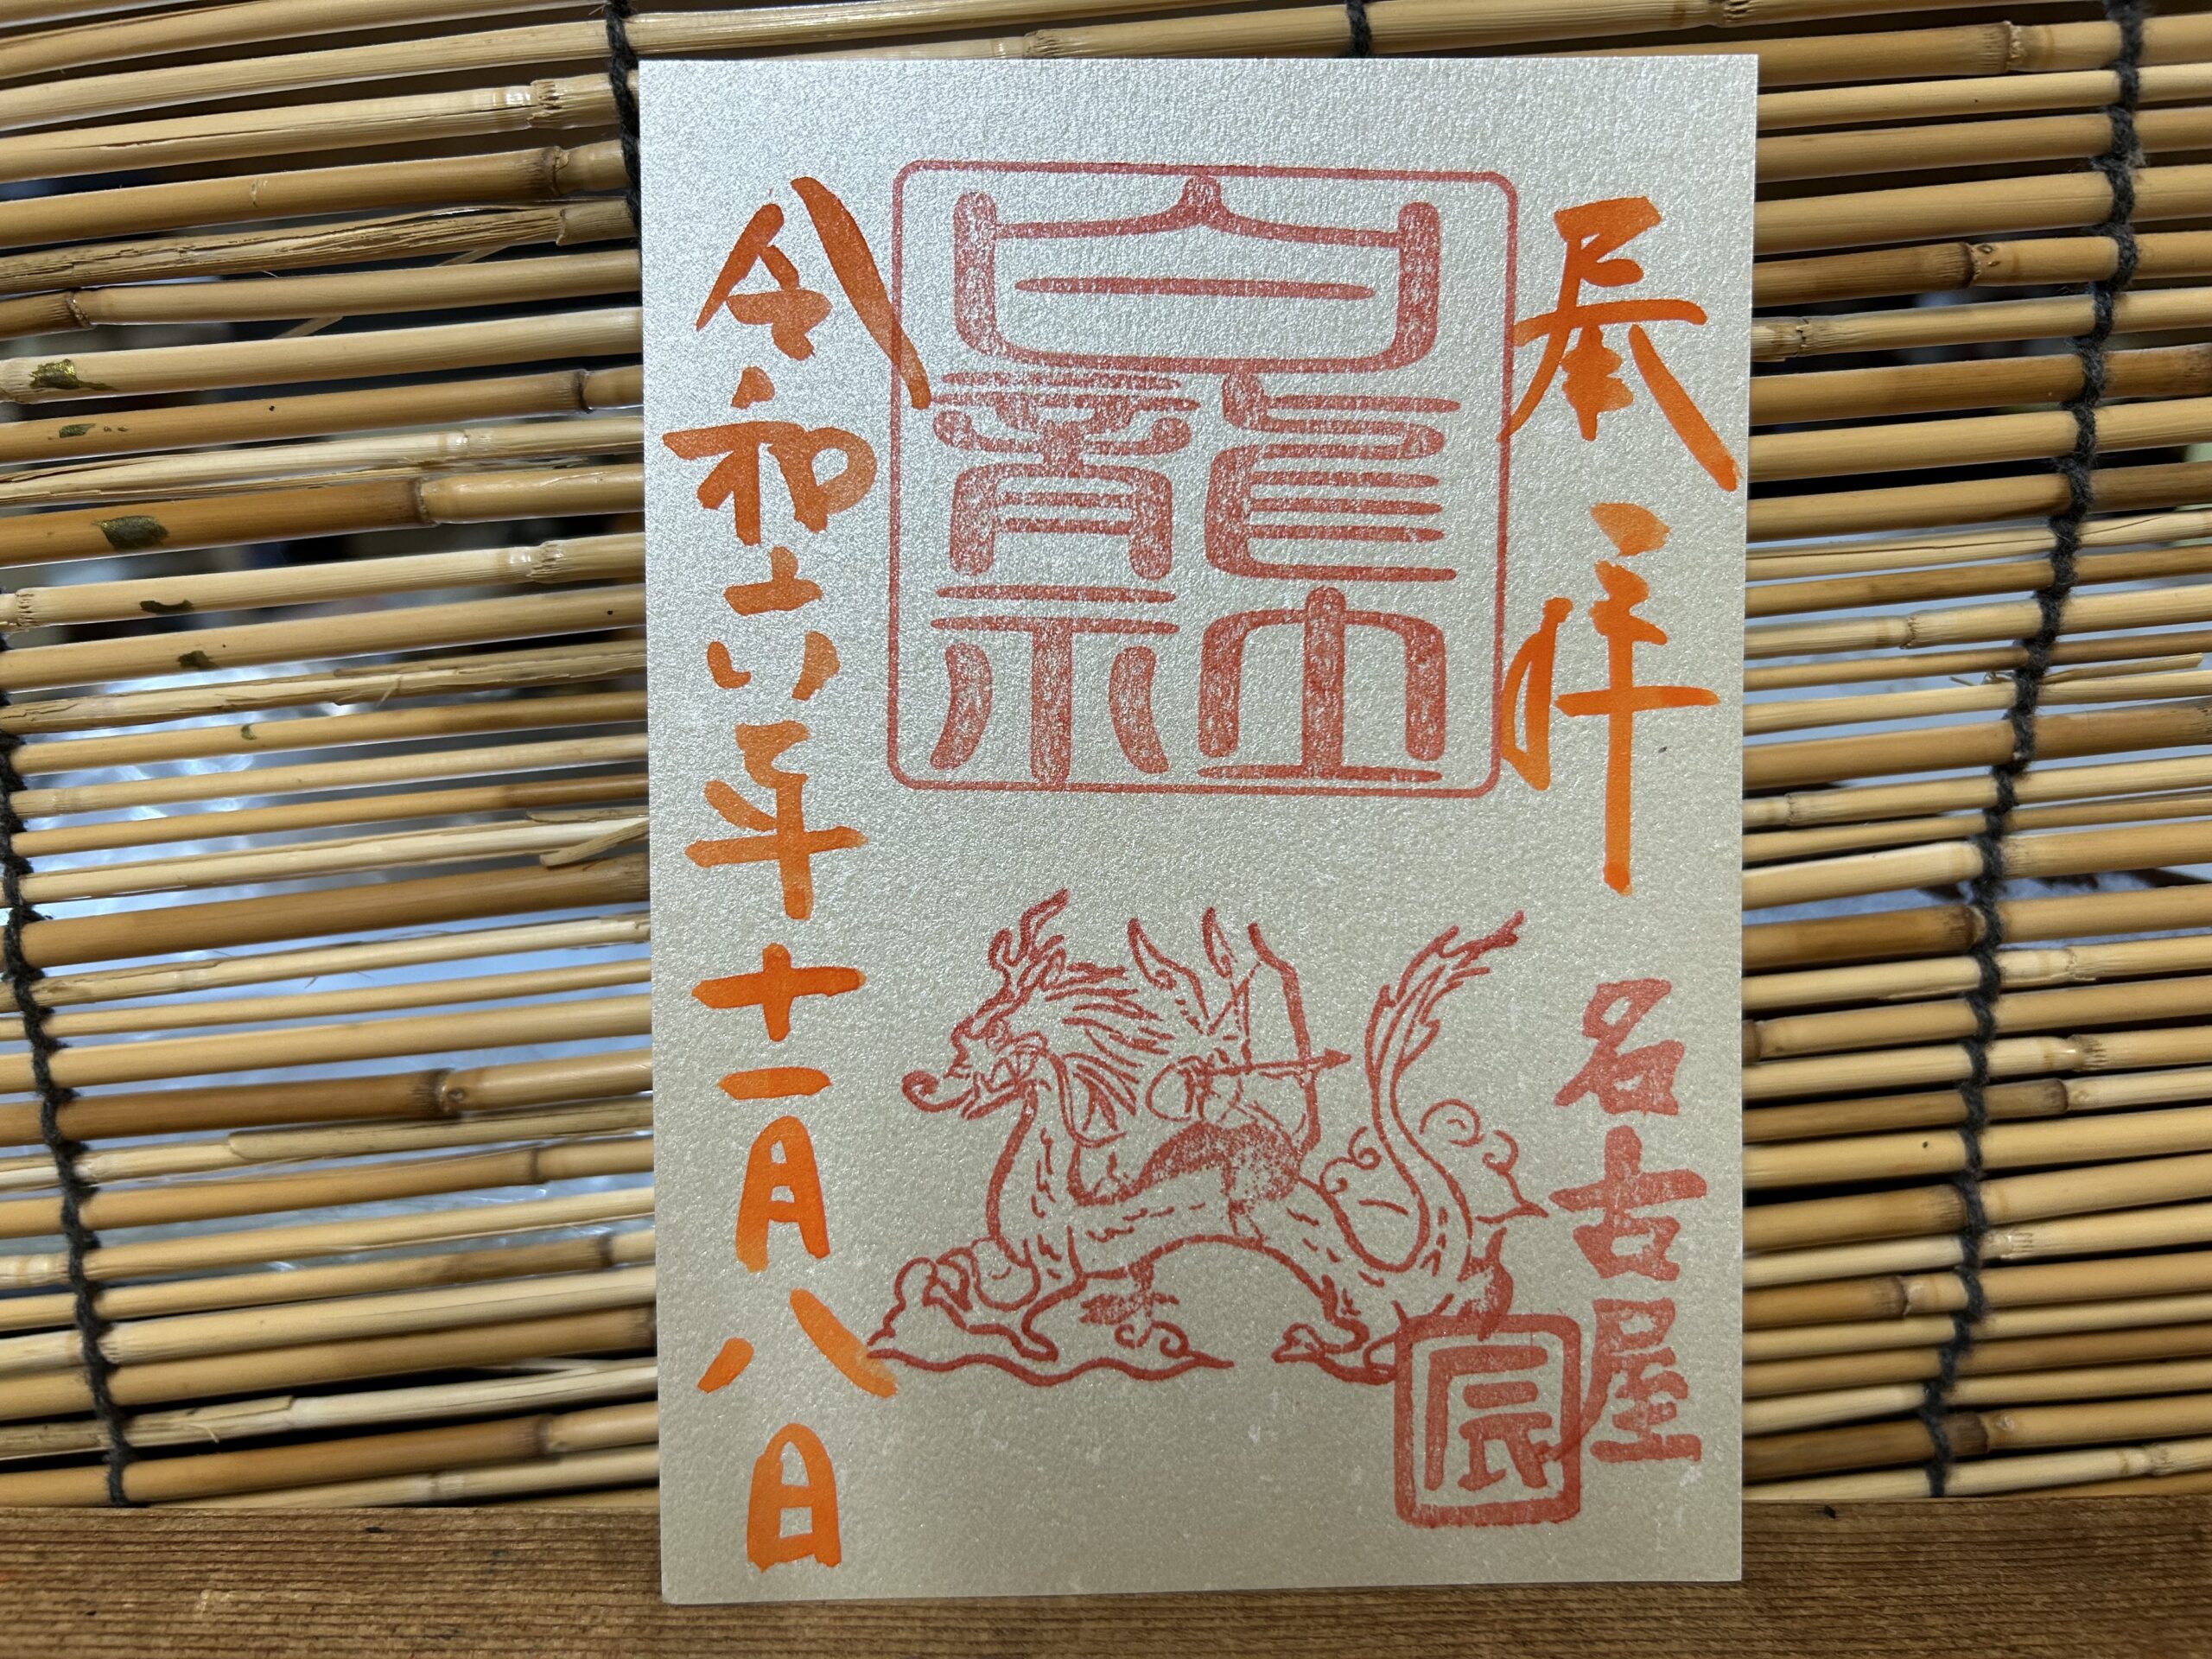 奉拝
名古屋
白龍社
辰
令和六年十一月八日